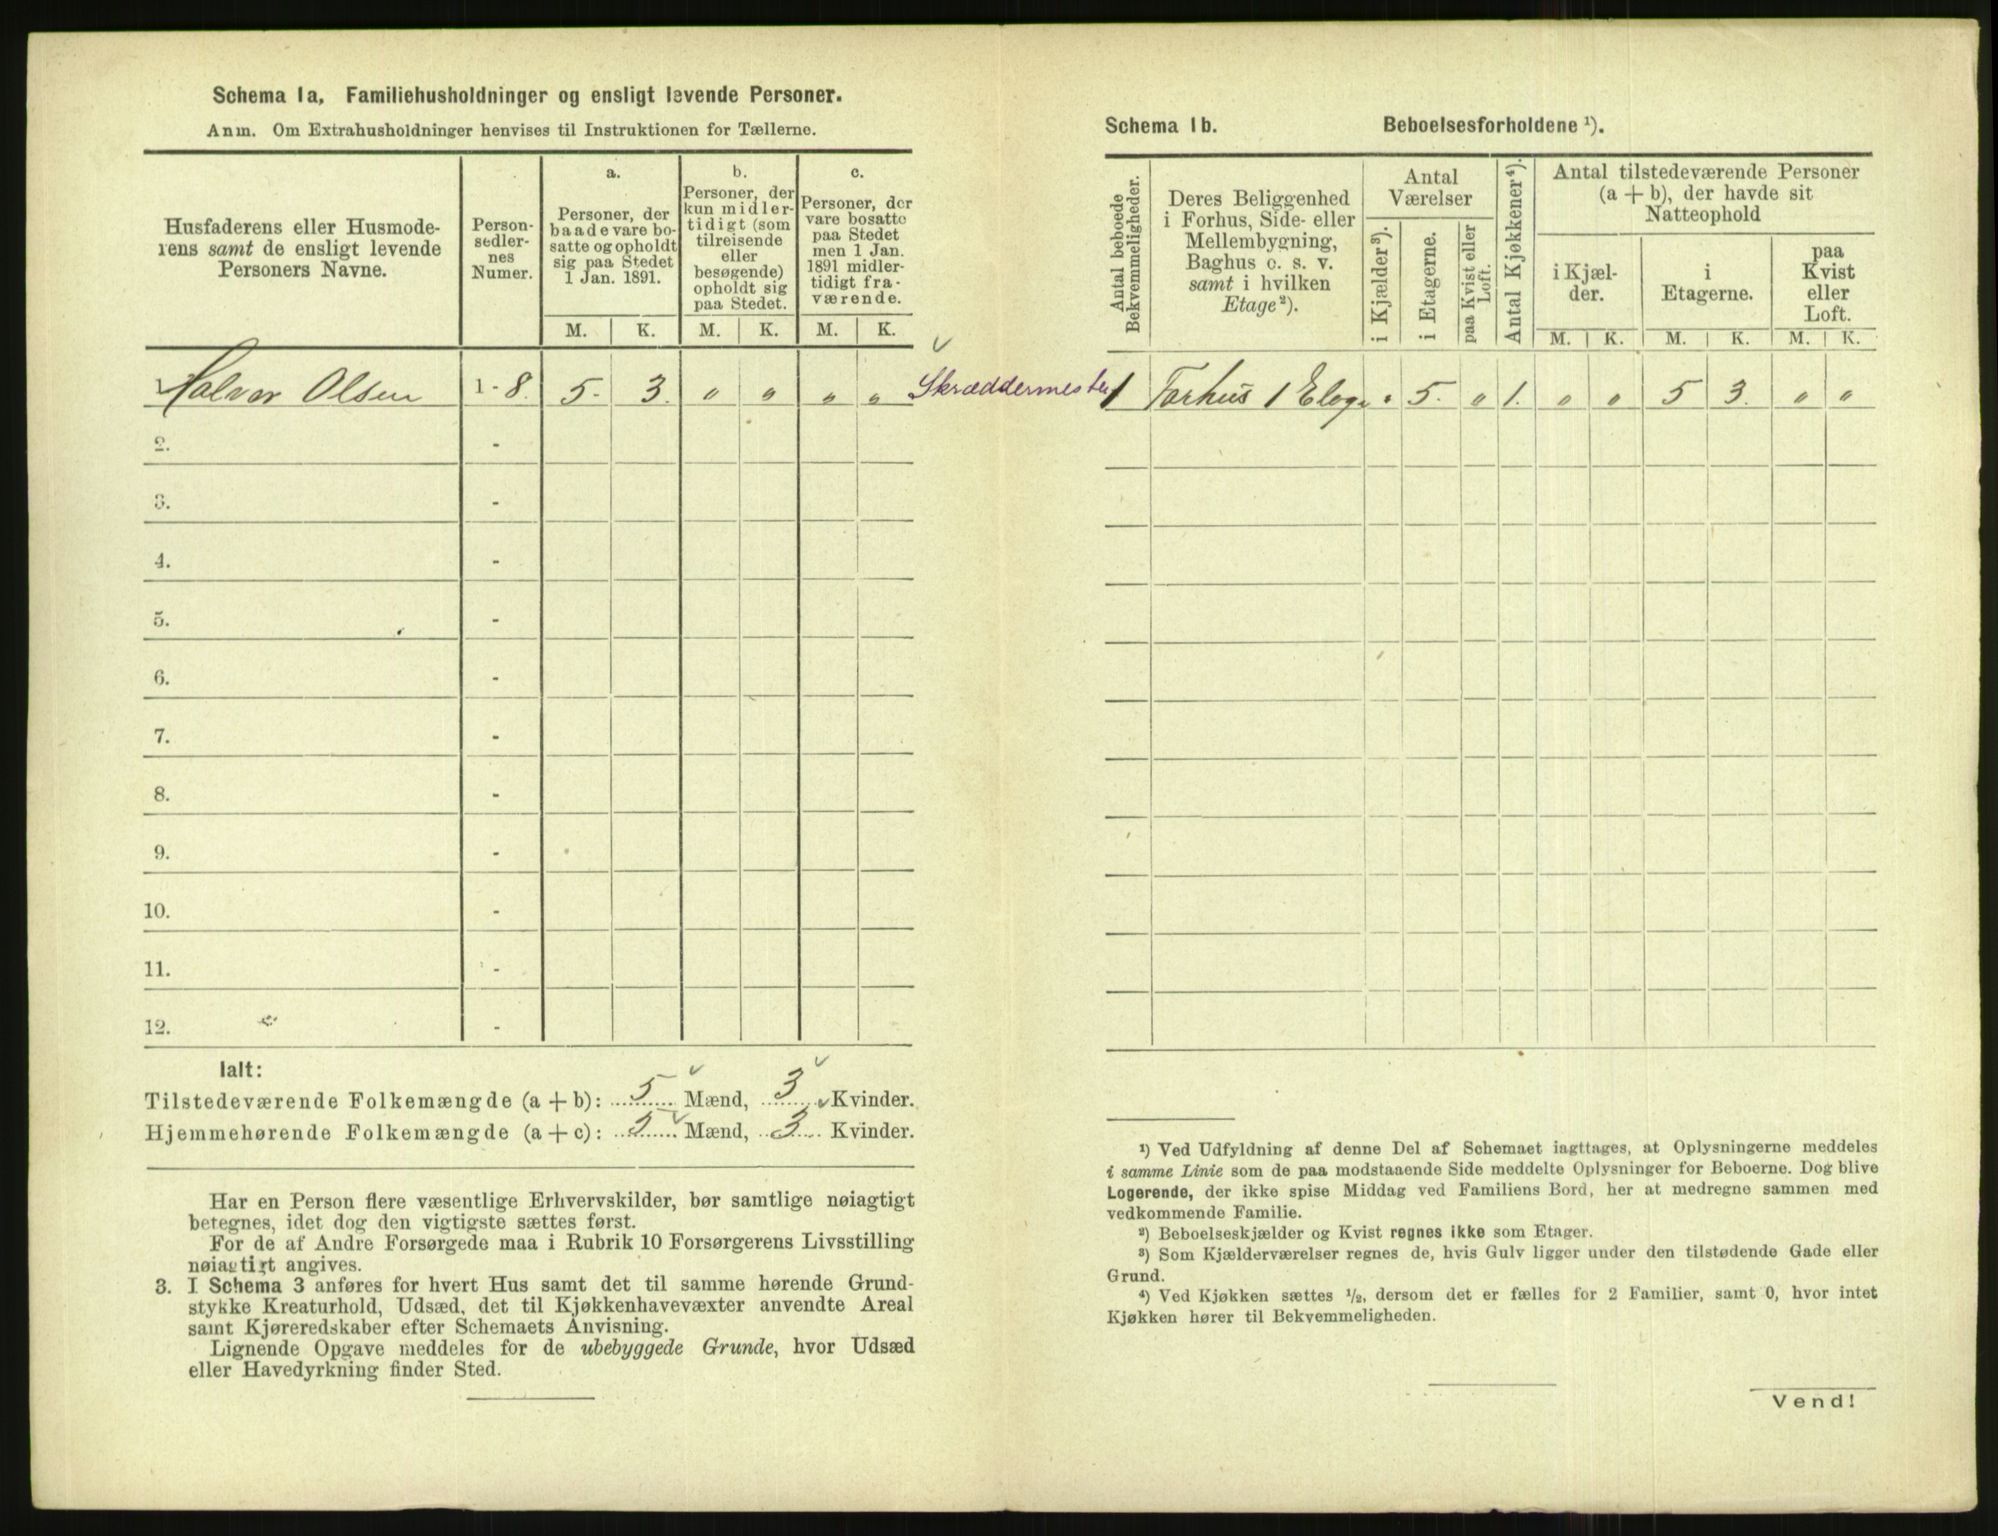 Schema 1a, Familiehusholdninger og ensligt levende Personer.
Anm. Om Extrahusholdninger henvises til Instruktionen for Tællerne.
Husfaderens eller Husmode-
rens samt de ensligt levende
Personers Navne.
Person-
sedler-
nes
Numer.
a.
Personer, der
baade vare bo-
satte og opholdt
sig paa Stedet
1 Jan. 1891.
M. K.
b.
Personer, der
kun midler-
tidigt (som
tilreisende
eller
besøgende)
opholdt sig
paa Stedet.
M. K.
c.
Personer, der
vare bosatte
paa Stedet
men 1 Jan.
1891 midler-
tidigt fra-
værende.
M. K.
Halvor Olsen 1 - 8. 5. 3. " " " " Skræddermester
2. -
3. -
4. -
5. -
6. -
7. -
8. -
9. -
10. -
11. -
12. -
Ialt:
Tilstedeværende Folkemængde (a + b): 5 Mænd, 3 Kvinder.
Hjemmehørende Folkemængde (a + c): 5 Mænd, 3 Kvinder.
Har en Person flere væsentlige Erhvervskilder, bør samtlige nøiagtigt
betegnes, idet dog den vigtigste sættes først.
For de af Andre Forsørgede maa i Rubrik 10 Forsørgerens Livsstilling
nøiagtigt angives.
3. I Schema 3 anføres for hvert Hus samt det til samme hørende Grund-
stykke Kreaturhold, Udsæd, det til Kjøkkenhavevæxter anvendte Areal
samt Kjøreredskaber efter Schemaets Anvisning.
Lignende Opgave meddeles for de ubebyggede Grunde, hvor Udsæd
eller Havedyrkning finder Sted.
Schema 1b. Beboelsesforholdene ¹).
Antal beboede
Bekvemmeligheder.
Deres Beliggenhed
i Forhus, Side- eller
Mellembygning,
Baghus o. s. v.
samt i hvilken
Etage²).
Antal
Værelser
i Kjælder³).
i Etagerne.
paa Kvist eller
Loft.
Antal Kjøkkener⁴).
Antal tilstedeværende Personer
(a + b), der havde sit
Natteophold
i Kjæl-
der.
M. K.
i
Etagerne.
M. K.
paa
Kvist
eller
Loft.
M. K.
1 Forhus 1 Etage " 5. " 1. " " 5 3. " "
¹) Ved Udfyldning af denne Del af Schemaet iagttages, at Oplysningerne meddeles
i samme Linie som de paa modstaaende Side meddelte Oplysninger for Beboerne. Dog blive
Logerende, der ikke spise Middag ved Familiens Bord, her at medregne sammen med
vedkommende Familie.
²) Beboelseskjælder og Kvist regnes ikke som Etager.
³) Som Kjælderværelser regnes de, hvis Gulv ligger under den tilstødende Gade eller
Grund.
⁴) Ved Kjøkken sættes ½, dersom det er fælles for 2 Familier, samt 0, hvor intet
Kjøkken hører til Bekvemmeligheden.
Vend!